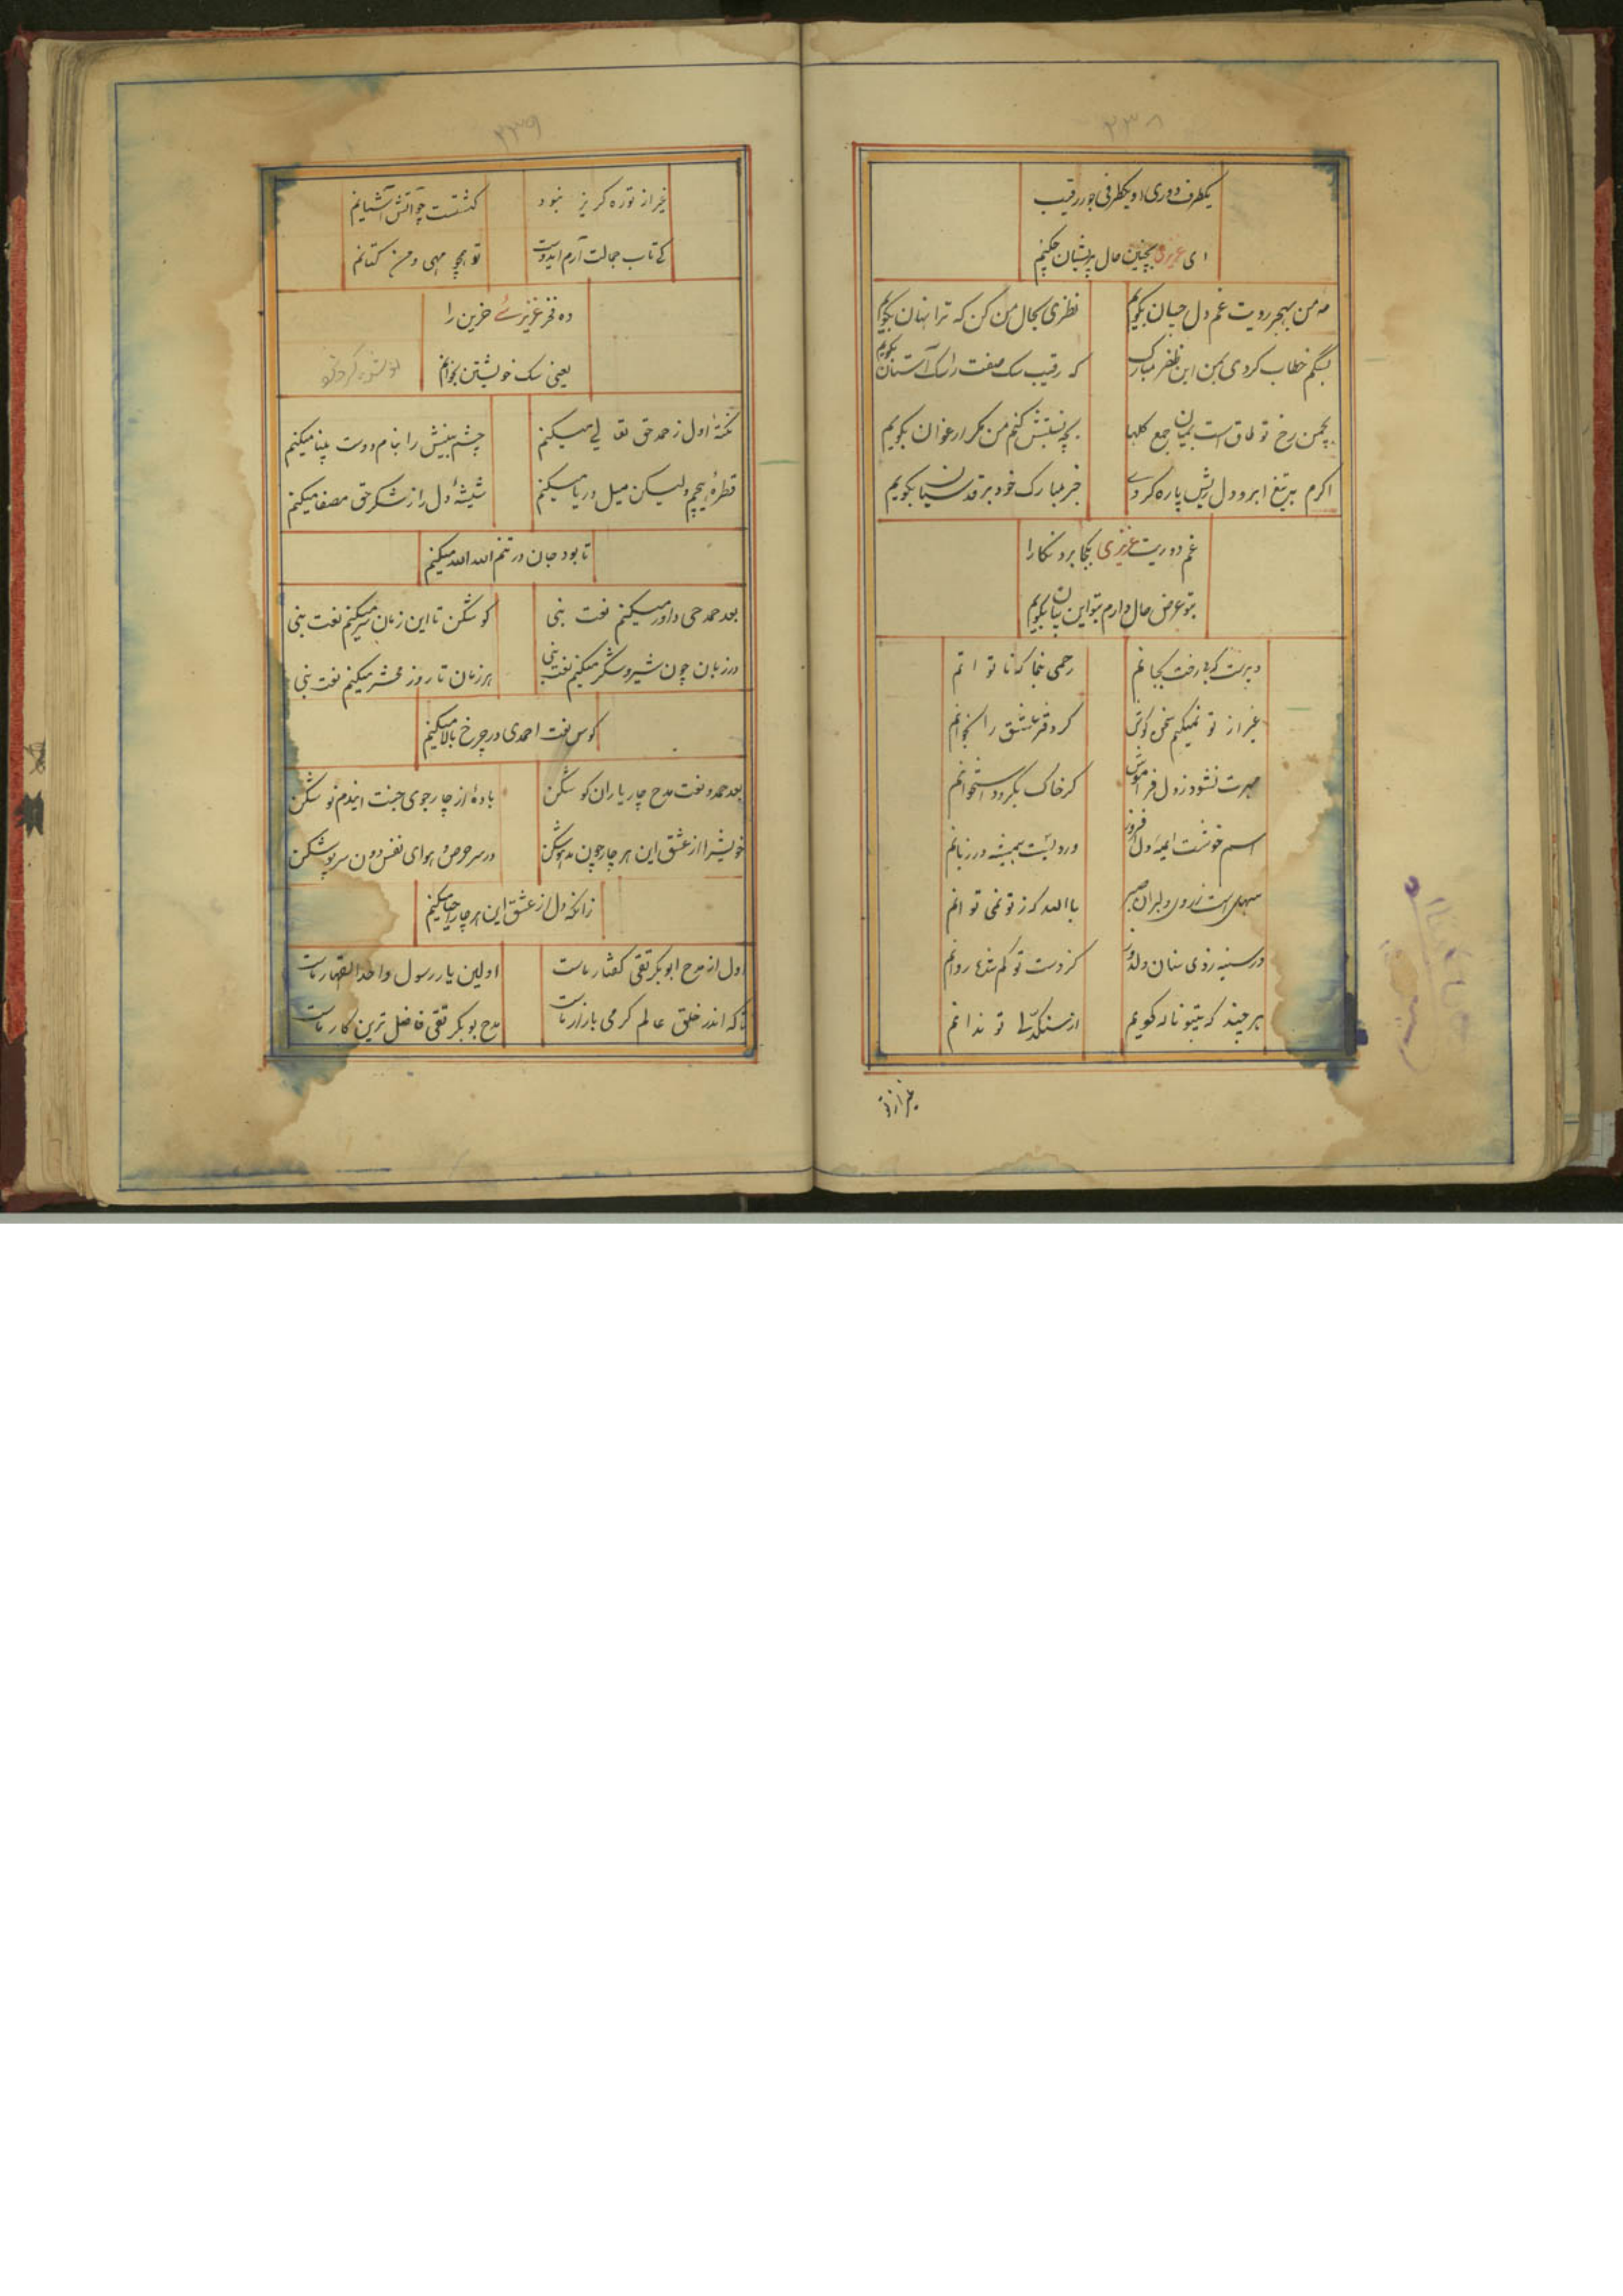 ۲۳۸
یکطرف دوری او یکطرفی جور رقیب
ای عزیزی بچنین حال پریشان چکنم
مه من بهجر رویت غم دل چسان بگویم
نظری بحال من کن که ترا نهان بگویم
بسگم خطاب کردی بمن این ظفر مبارک
که رقیب سگ صفت را سگ آستان بگویم
بچمن رخ تو طاق است بمیان جمع گلها
بچه نسبتش کنم من مگر ارغوان بگویم
اگرم بتیغ ابرو دل ریش پاره کردی
خبر مبارک خود بر قدسیان بگویم
غم دوریت عزیزی بکجا برد نگارا
بتو عرض حال دارم بتو این بیان بگویم
رحمی بنما که ناتوانم
غیر از تو نمیکنم سخن گوش
کر دفتر عشق را بخوانم
مهرت نشود ز دل فراموش
کر خاک بگردد استخوانم
اسم خوشت ایمه دل افروز
وردیست همیشه در زبانم
سهل است ز روی دلبران صبر
باالله که ز تو نمی توانم
در سینه زدی سنان دلدوز
کز دست تو کم شده روانم
هر چند که بیتو ناله گویم
از سنگدلی تو ندانم
غیر از تو
۲۳۹
غیر از تو ره گریز نبود
کی تاب جمالت آرم ایدوست
تو همچو مهی و من کتانم
ده فخر عزیزی حزین را
یعنی سگ خویشتن بخوانم
نکتهٔ اول ز حمد حق تعالی میکنم
چشم بینش را بنام دوست بینا میکنم
قطرهٔ هیچم ولیکن میل دریا میکنم
شیشهٔ دل را ز شکر حق مصفا میکنم
تا بود جان در تنم الله الله میکنم
بعد حمد حی داور میکنم نعت نبی
گوش کن تا این زمان سر میکنم نعت نبی
در زبان چون شیر و شکر میکنم نعت نبی
هر زمان تا روز محشر میکنم نعت نبی
کوس نعت احمدی در چرخ بالا میکنم
بعد حمد و نعت مدح چار یاران گوش کن
بادهٔ از چار جوی جنت ایندم نوش کن
خویش را از عشق این هر چار چون مدهوش کن
در سر حرص و هوای نفس دون سرپوش کن
زانکه دل از عشق این هر چار احیا میکنم
اول از مدح ابوبکر تقی گفتار ماست
اولین یار رسول واحد القهار ماست
تا که اندر خلق عالم گرمی بازار ماست
مدح بوبکر تقی فاضل ترین کار ماست